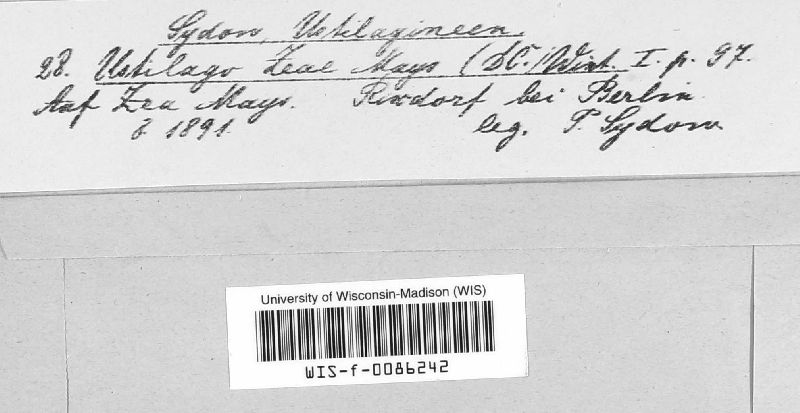 Sydow, Ustilagineen.
28. Ustilago Zeae Mays (DC.) Wint. I. p. 97.
Auf Zea Mays. Rixdorf bei Berlin
8 1891. leg. P. Sydow
University of Wisconsin-Madison (WIS)
WIS-f-0086242